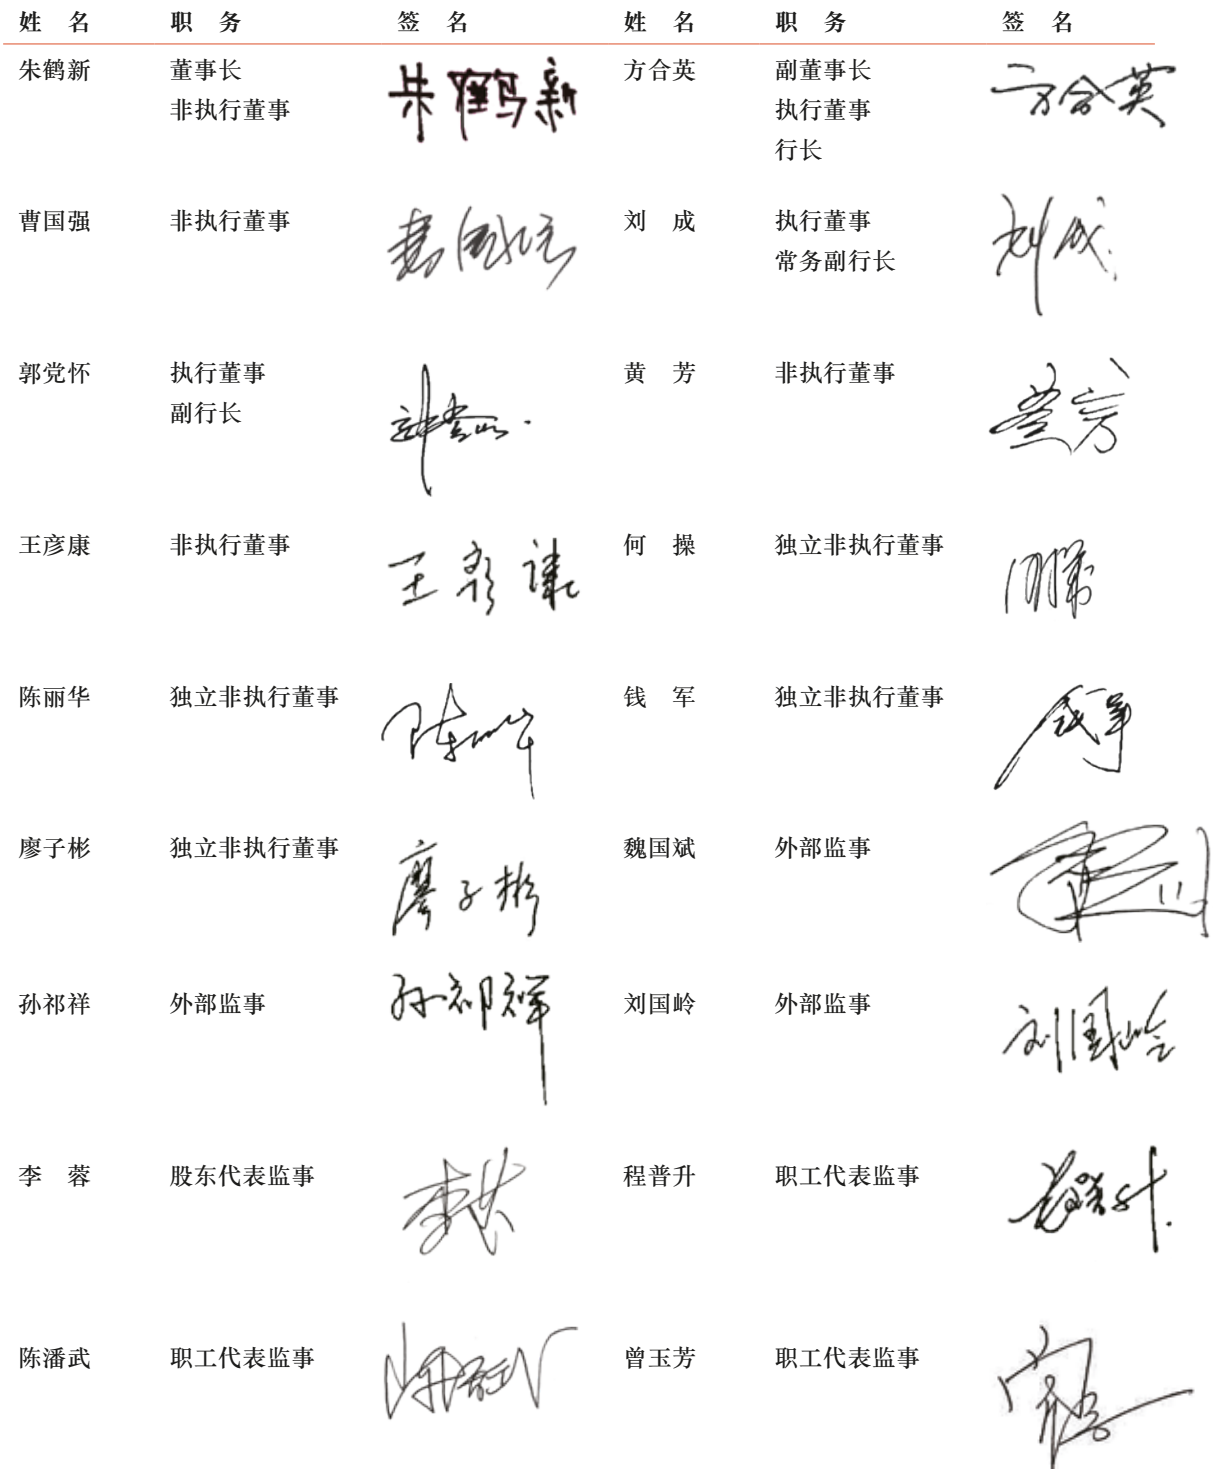 姓 名 职 务 签 名 姓 名 职 务 签 名
朱鹤新 董事长 朱鹤新 方合英 副董事长 方合英
非执行董事 执行董事
行长
曹国强 非执行董事 曹国强 刘 成 执行董事 刘成
常务副行长
郭党怀 执行董事 郭党怀 黄 芳 非执行董事 黄芳
副行长
王彦康 非执行董事 王彦康 何 操 独立非执行董事
陈丽华 独立非执行董事 陈丽华 钱 军 独立非执行董事 钱军
廖子彬 独立非执行董事 廖子彬 魏国斌 外部监事
孙祁祥 外部监事 孙祁祥 刘国岭 外部监事 刘国岭
李 蓉 股东代表监事 李蓉 程普升 职工代表监事 程普升
陈潘武 职工代表监事 陈潘武 曾玉芳 职工代表监事